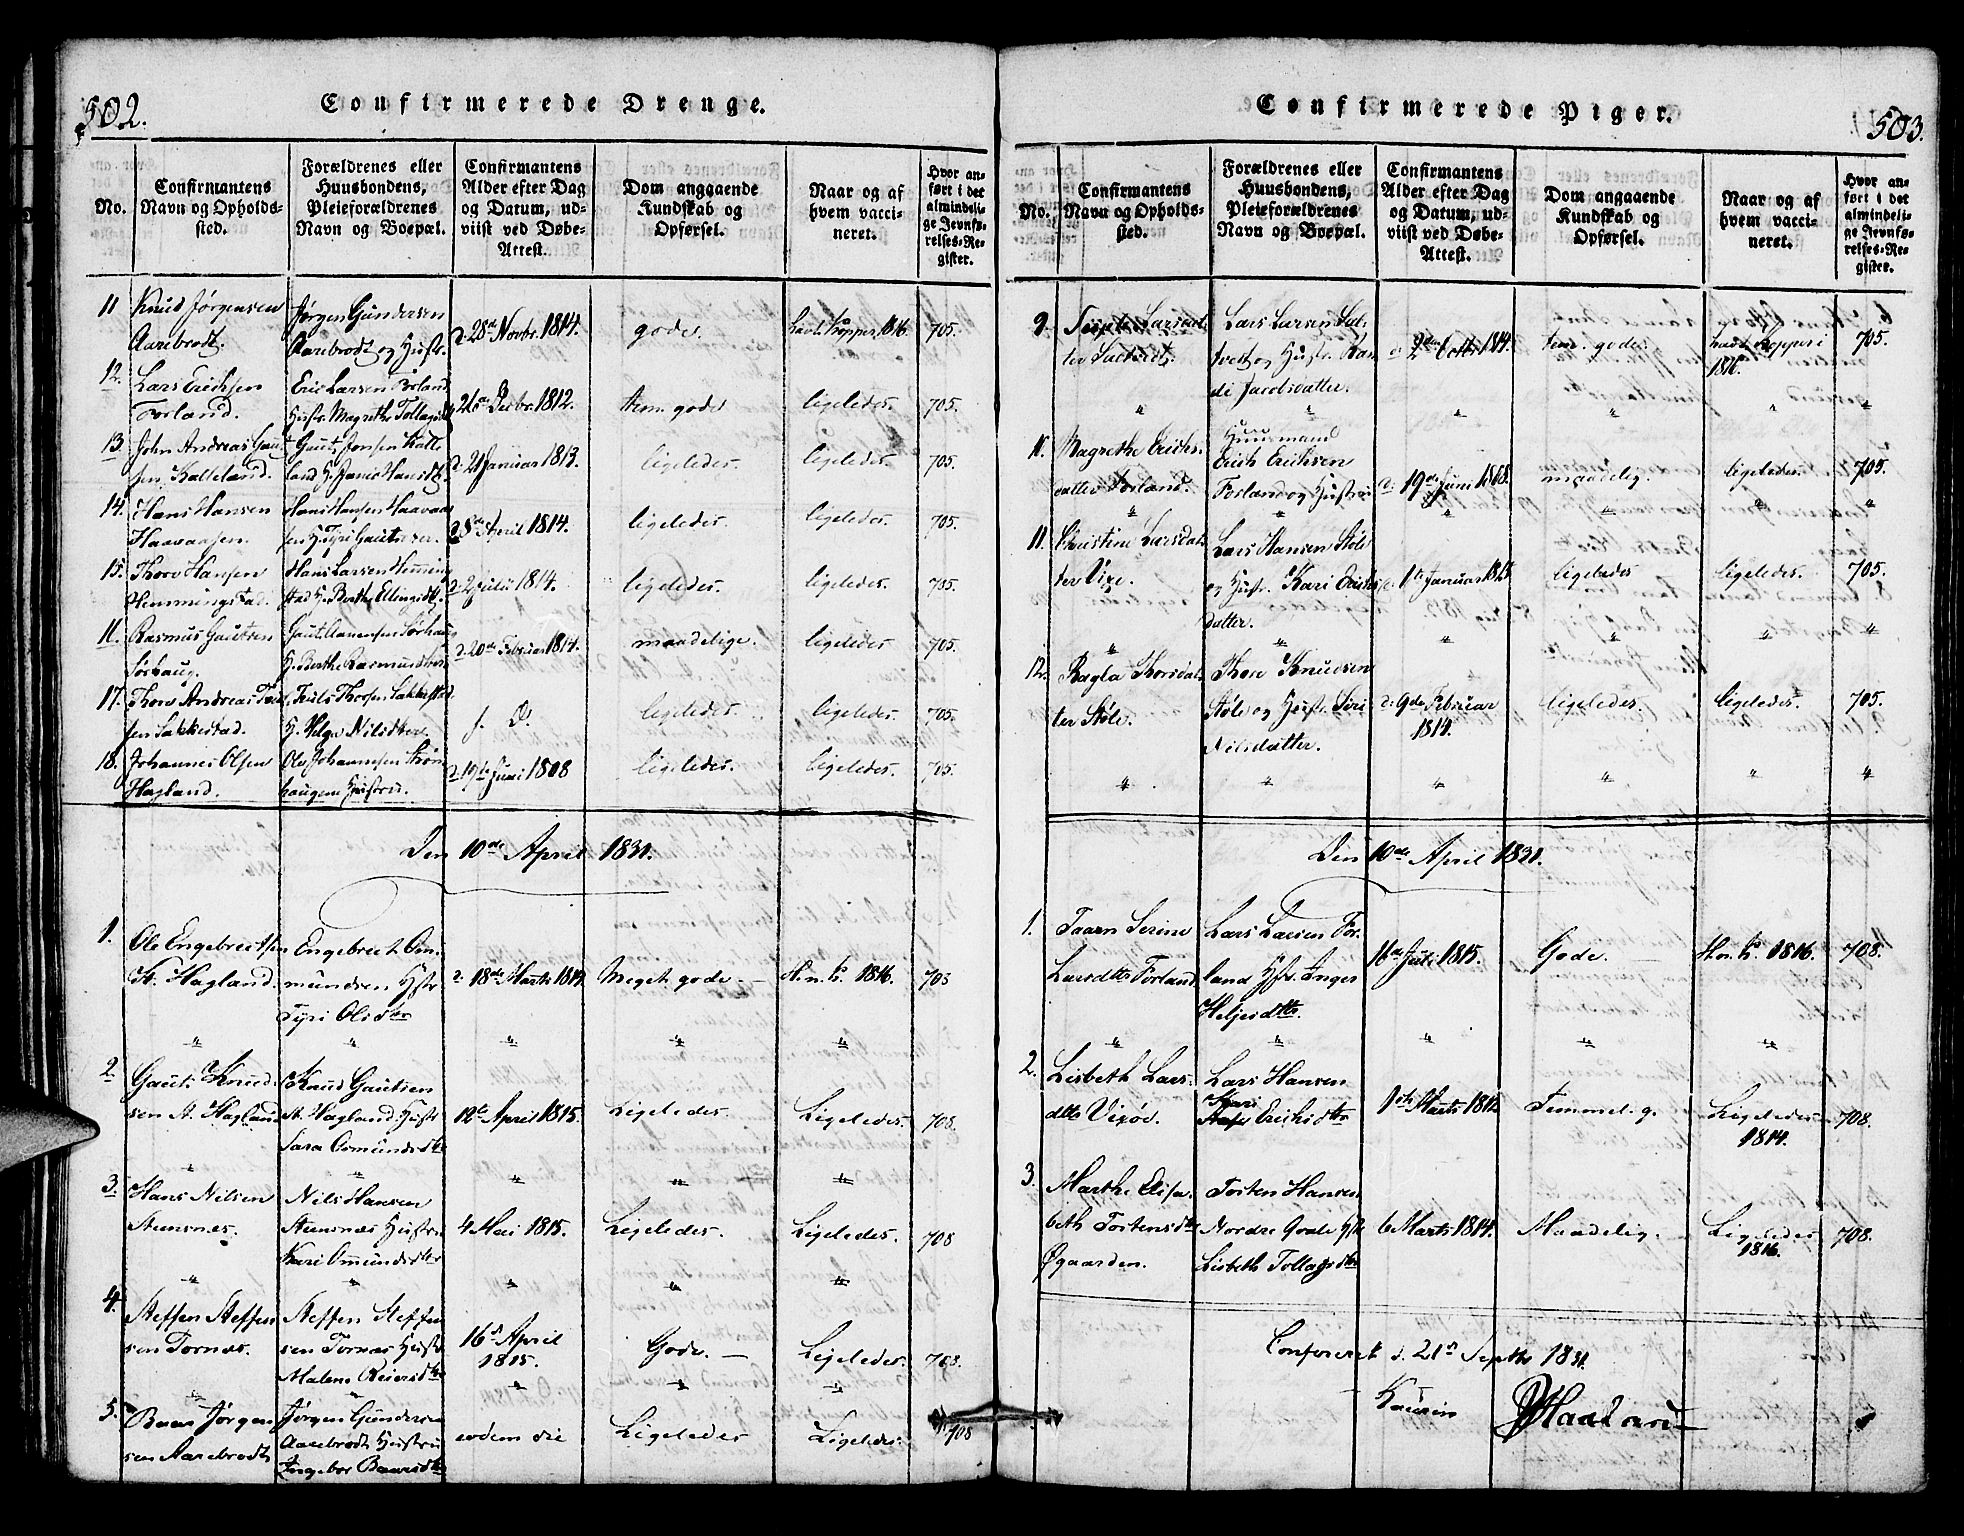 502.
Confirmerede Drenge.
No.
Confirmantens
Navn og Opholds-
sted.
Forældrenes eller
Huusbondens,
Pleieforældrenes
Navn og Boepæl.
Confirmantens
Alder efter Dag
og Datum, ud-
viist ved Døbe-
Attest.
Dom angaaende
Kundskab og
Opførsel.
Naar og af
hvem vacci-
neret.
Hvor an-
ført i det
almindeli-
ge Jevnfø-
relses-Re-
gister.
11 Knud Jørgensen
Aarebrodt.
Jørgen Gundersen
Aarebrodt og Hustr.
d. 28de Novbr. 1814.
gode.
Havt Kopper 1816.
705.
12. Lars Erichsen
Forland.
Eric Larsen Forland
Hustr. Magrethe
26de Decbr. 1812.
tem. gode
ligeledes.
705.
13. John Andreas Gaut-
sen Kalleland.
Gaut Jonsen Kalle
land H.
d. 21 Januar 1813.
ligeledes.
ligeledes.
705.
14. Hans Hansen
Haavaasen.
Hans Hansen Haavaa
sen H. Tyri
28de April 1814.
ligeledes.
ligeledes.
705.
15. Thore Hansen
Hemmingstad.
Hans Larsen Hemming
stad H. Berthe
d. 2 Julii 1814.
ligeledes.
ligeledes.
705.
16. Rasmus Gautsen
Sørhaug.
Gaut Aanensen Sørhaug
H. Berthe
d. 20de Februar 1814.
maadelige.
ligeledes
705.
17. Thore Andreas
sen Sakkestad.
Thorsen Sakkestad
H. Helga Nilsdtter
s. D.
ligeledes
ligeledes.
705.
18. Johannes Olsen
Hagland.
Ole Johannesen
haugen Hustru.
d. 19de Juni 1808
ligeledes.
ligeledes.
705.
Den 10de April 1831.
1. Ole Engebreetsen
St. Hagland.
Engebreet Om-
mundsen Hstr
Tyri Olsdtr
d. 18de Marts 1814
Meget gode. —
H. n. K. 1816.
705
2 Gaut Knud-
sen St. Hagland
Knud Gautsen
St. Hagland Hustr
Sara Osmundsdtr
12te April 1815.
Ligeledes.
Ligeledes.
708.
3 Hans Nilsen
Stensnes.
Nils Hansen
Stensnæs Hustr
Kari Omundsdtr
4 Mai 1815.
Ligeledes.
Ligeledes.
708
4. Steffen Steffen
sen Tornæs.
Steffen Steffen
sen Tornæs Hustr
Malene Reiersdtr
16de April
1815.
Gode. —
Ligeledes.
708.
5. Baar Jørgen
sen Aarebrodt
Jørgen Gundersen
Aarebrodt Hustru
Ingebor Baarsdtr
eodem die
Ligeledes
Ligeledes.
708
Confirmerede Piger.
503.
No.
Confirmantens
Navn og Opholds-
sted.
Forældrenes eller
Huusbondens,
Pleieforældrenes
Navn og Boepæl.
Confirmantens
Alder efter Dag
og Datum, ud-
viist ved Døbe-
Attest.
Dom angaaende
Kundskab og
Opførsel.
Naar og af
hvem vacci-
neret.
Hvor an-
ført i det
almindeli-
ge Jevnfø-
relses-Re-
gister.
9. Larsdat-
ter
Lars Larsen
og Hustr. Kan-
di Jacobsdatter.
d. 2den Octb. 1814.
tem. gode.
havt Kopper i
1816.
705.
10. Magrethe Erichs-
datter Forland.
Huusmand
Erich Erichsen
Forland og Hustru
d. 19de Juni 1808.
maadelig.
ligeledes.
705.
11. Christine Larsdat-
ter Vixe.
Lars Hansen Støle
og Hustr. Kari Erichs
datter.
d. 1te Januar 1815
ligeledes
ligeledes.
705.
12. Ragla Thorsdat-
ter Støle.
Thore Knudsen
Støle og Hustr. Siri
Nilsdatter.
d. 9de Februar
1814.
ligeledes.
ligeledes.
705.
Den 10de April 1831.
1. Taarn Serine
Larsdtr Forland
Lars Larsen For-
land Hstr Inger
Heljesdtr.
16de Juli 1815.
Gode. —
H. n. K. 1816.
708.
2. Lisbeth Lars-
dtr Vixøe.
Lars Hansen
Kari
Erichsdtr
1ste Marts 1812
Temmelig.
Ligeledes
1814.
708.
3. Marthe Elisa-
beth Tortensdtr
Øgaarden.
Torten Hansen
Nordre Gode Hstr
Lisbeth Tollagsdtr
6 Marts 1814.
Maadelig.
Ligeledes
1816.
708.
Confereret d. 21de Septbr 1831.
Kaurin